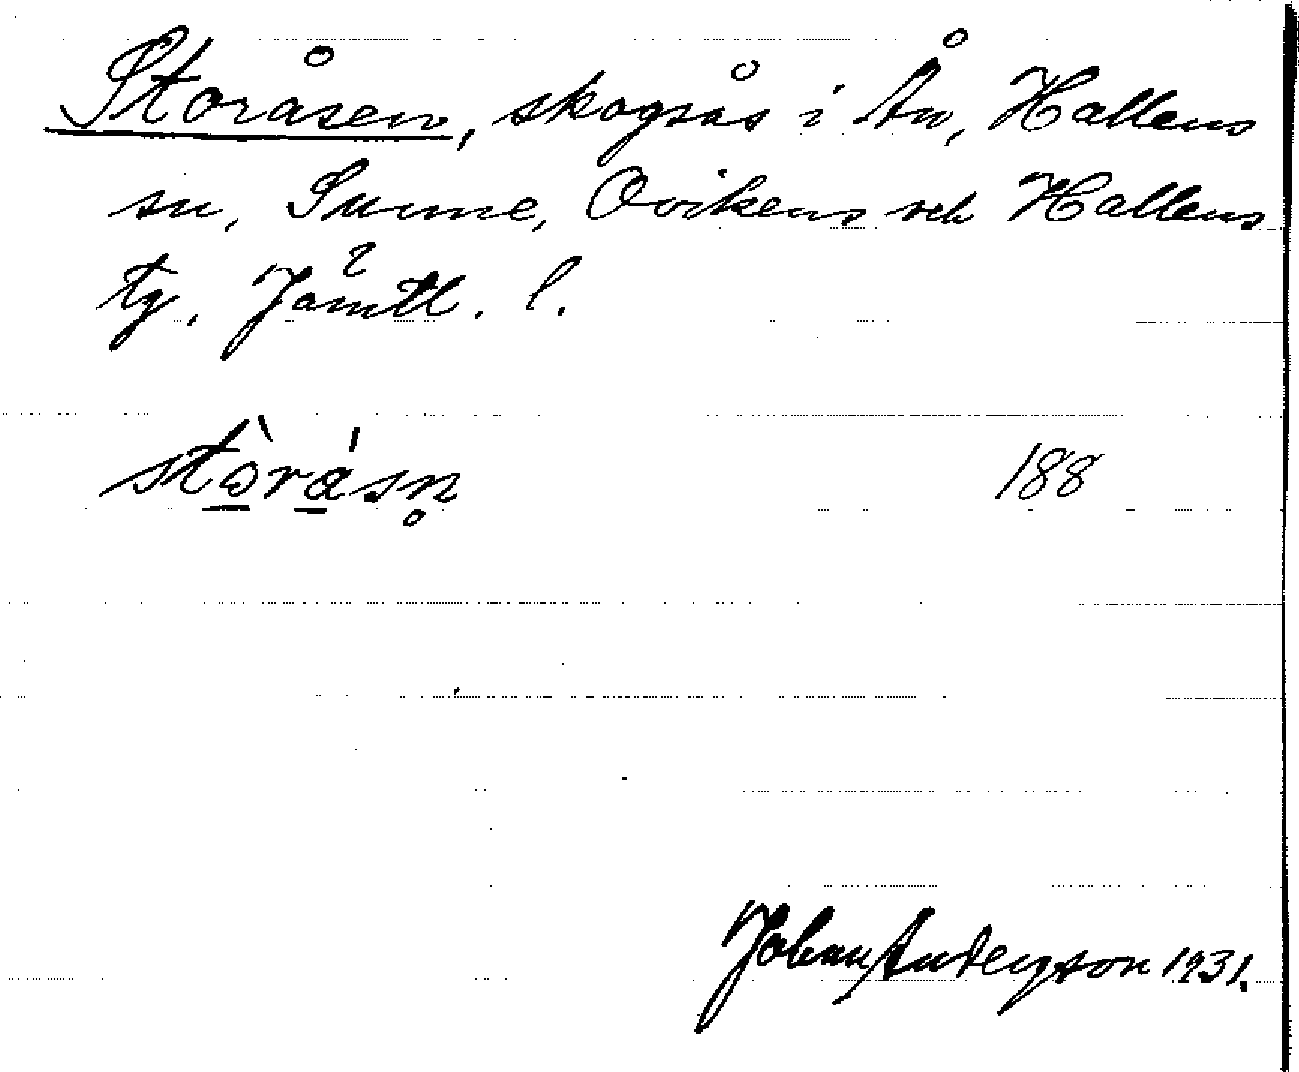 Storåsen, skogsås i Ån, Hallens
sn, Sunne, Ovikens och Hallens
tg. Jämtl. l.
stò̱rá̱sn̥ 188
Johan Anderson 1931.